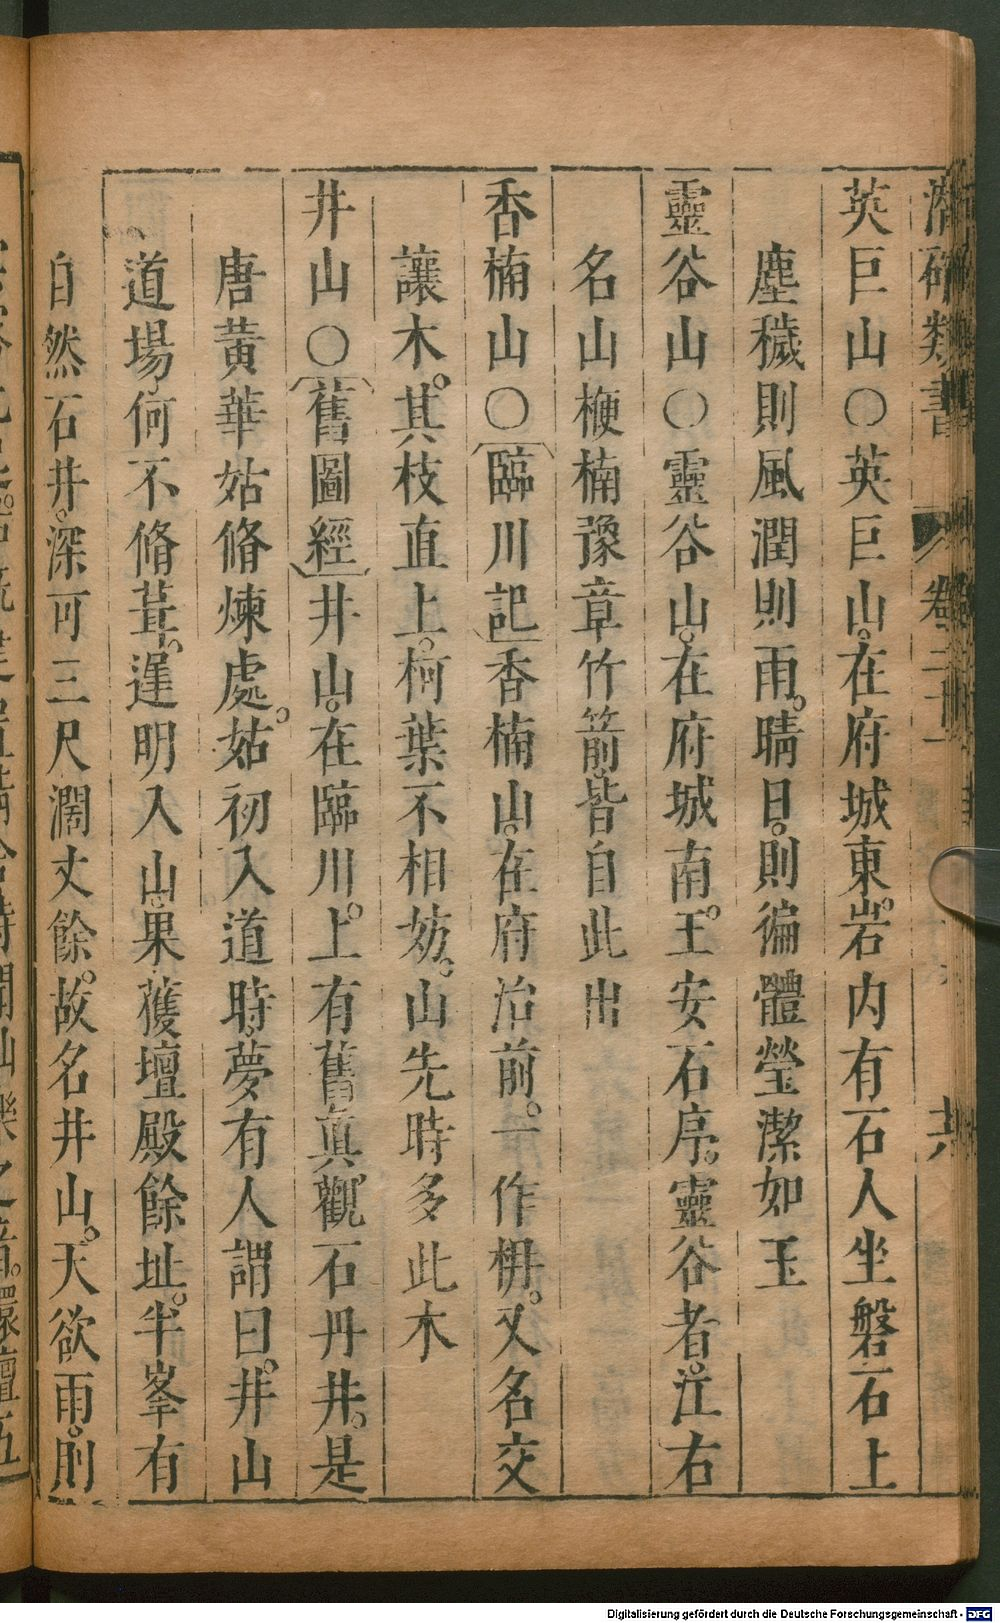 潛確類書　卷二十一
英巨山○英巨山。在府城東。岩内有石人坐磐石上
塵穢則風潤則雨。晴日。則徧體瑩潔如玉
靈谷山○靈谷山。在府城南。王安石序。靈谷者。江右
名山楩楠豫章竹箭。皆自此出
香楠山○臨川記香楠山。在府治前。一作枏。又名交
讓木。其枝直上。柯葉不相妨。山先時多此木
井山○舊圖經井山。在臨川。上有舊眞觀石丹井。是
唐黃華姑脩煉處。姑初入道時。夢有人謂曰。井山
道場何不脩葺。遲明入山。果獲壇殿餘址。半峯有
自然石井。深可三尺濶丈餘。故名井山。天欲雨。則
Digitalisierung gefördert durch die Deutsche Forschungsgemeinschaft - DFG